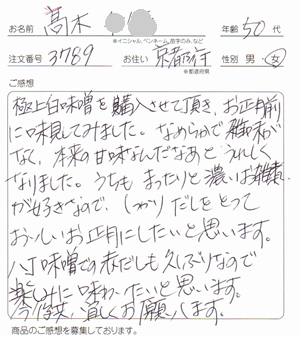 お名前 高木
※イニシャル、ペンネーム、苗字のみ、など
年齢 50代
注文番号 3789
お住い 京都府
※都道府県
性別 男・女
ご感想
極上白味噌を購入させて頂き、お正月前
に味見してみました。なめらかで雑味が
なく、本来の甘味なんだなあとうれしく
なりました。うちも まったりと濃いお雑煮
が好きなので、しっかりだしをとって
おいしいお正月にしたいと思います。
八丁味噌での赤だしも久しぶりなので
楽しみに味わいたいと思います。
今後共、宜しくお願いします。
商品のご感想を募集しております。